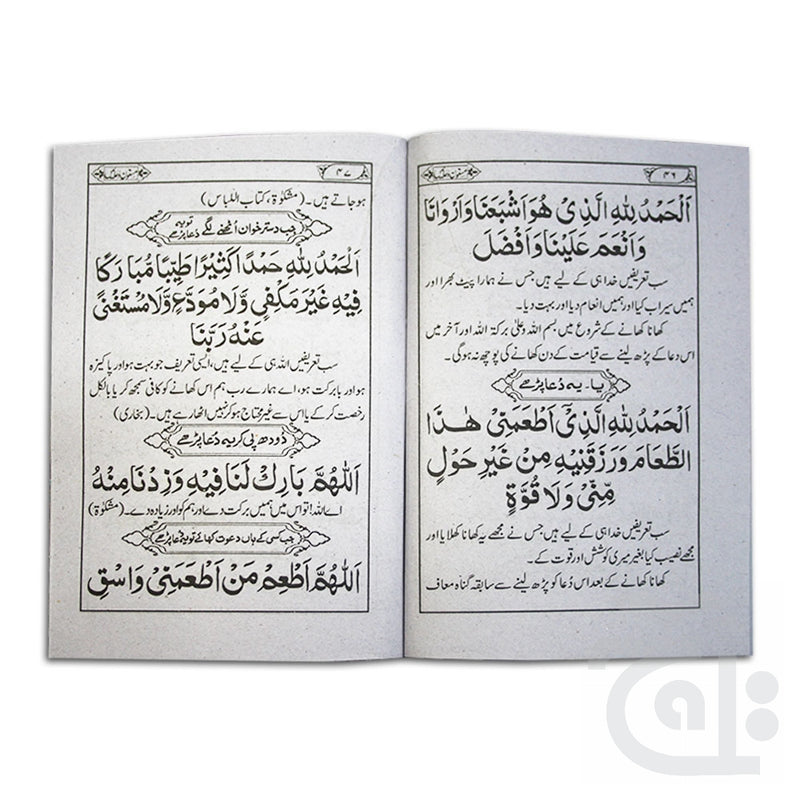 ۴۶
مسنون دعائیں
اَلْحَمْدُ لِلّٰهِ الَّذِیْ هُوَ اَشْبَعَنَا وَاَرْوَانَا
وَاَنْعَمَ عَلَیْنَا وَاَفْضَلَ
سب تعریفیں خدا ہی کے لیے ہیں جس نے ہمارا پیٹ بھرا اور
ہمیں سیراب کیا اور ہمیں انعام دیا اور بہت دیا۔
کھانا کھانے کے شروع میں بسم اللہ وعلیٰ برکۃ اللہ اور آخر میں
اس دعا کے پڑھ لینے سے قیامت کے دن کھانے کی پوچھ نہ ہوگی۔
یا۔ یہ دُعا پڑھے
اَلْحَمْدُ لِلّٰهِ الَّذِیْٓ اَطْعَمَنِیْ هٰذَا
الطَّعَامَ وَرَزَقَنِیْهِ مِنْ غَیْرِ حَوْلٍ
مِّنِّیْ وَلَا قُوَّةٍ
سب تعریفیں خدا ہی کے لیے ہیں جس نے مجھے یہ کھانا کھلایا اور
مجھے نصیب کیا بغیر میری کوشش اور قوت کے۔
کھانا کھانے کے بعد اس دُعا کو پڑھ لینے سے سابقہ گناہ معاف
۴۷
مسنون دعائیں
ہو جاتے ہیں۔ (مشکوٰۃ، کتاب اللباس)
جب دسترخوان اُٹھنے لگے تو یہ دُعا پڑھے
اَلْحَمْدُ لِلّٰهِ حَمْدًا كَثِیْرًا طَیِّبًا مُّبَارَكًا
فِیْهِ غَیْرَ مَكْفِیٍّ وَّلَا مُوَدَّعٍ وَّلَا مُسْتَغْنًی
عَنْهُ رَبَّنَا
سب تعریفیں اللہ ہی کے لیے ہیں، ایسی تعریف جو بہت ہو اور پاکیزہ
ہو اور بابرکت ہو، اے ہمارے رب ہم اس کھانے کو کافی سمجھ کر یا بالکل
رخصت کر کے یا اس سے غیر محتاج ہو کر نہیں اٹھا رہے ہیں۔ (بخاری)
دُودھ پی کر یہ دُعا پڑھے
اَللّٰهُمَّ بَارِكْ لَنَا فِیْهِ وَزِدْنَا مِنْهُ
اے اللہ! تو اس میں ہمیں برکت دے اور ہم کو اور زیادہ دے۔ (مشکوٰۃ)
جب کسی کے ہاں دعوت کھائے تو یہ دُعا پڑھے
اَللّٰهُمَّ اَطْعِمْ مَنْ اَطْعَمَنِیْ وَاسْقِ